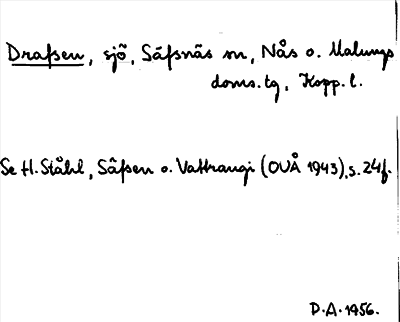 Drafsen, sjö, Säfsnäs sn, Nås o. Malungs
doms.tg, Kopp.l.
Se H. Ståhl, Säfsen o. Vattrangi (OUÅ 1943), s. 24f.
D.A. 1956.